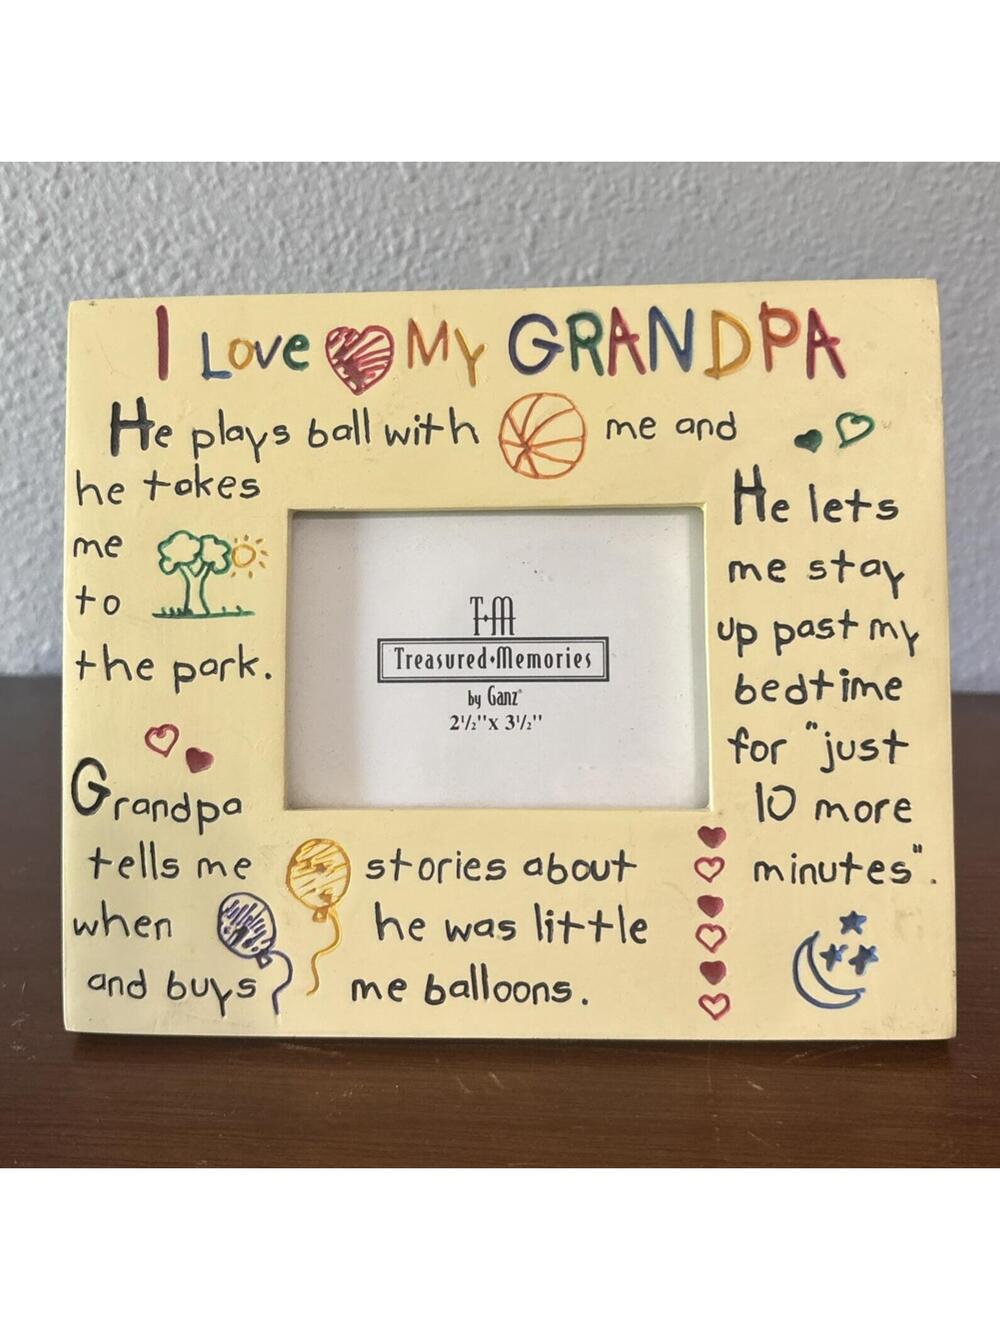 I Love My GRANDPA
He plays ball with me and
he takes
me
to
the park.
He lets
me stay
up past my
bedtime
for "just
10 more
minutes".
T·M
Treasured•Memories
by Ganz®
2½"x 3½"
Grandpa
tells me stories about
when he was little
and buys me balloons.